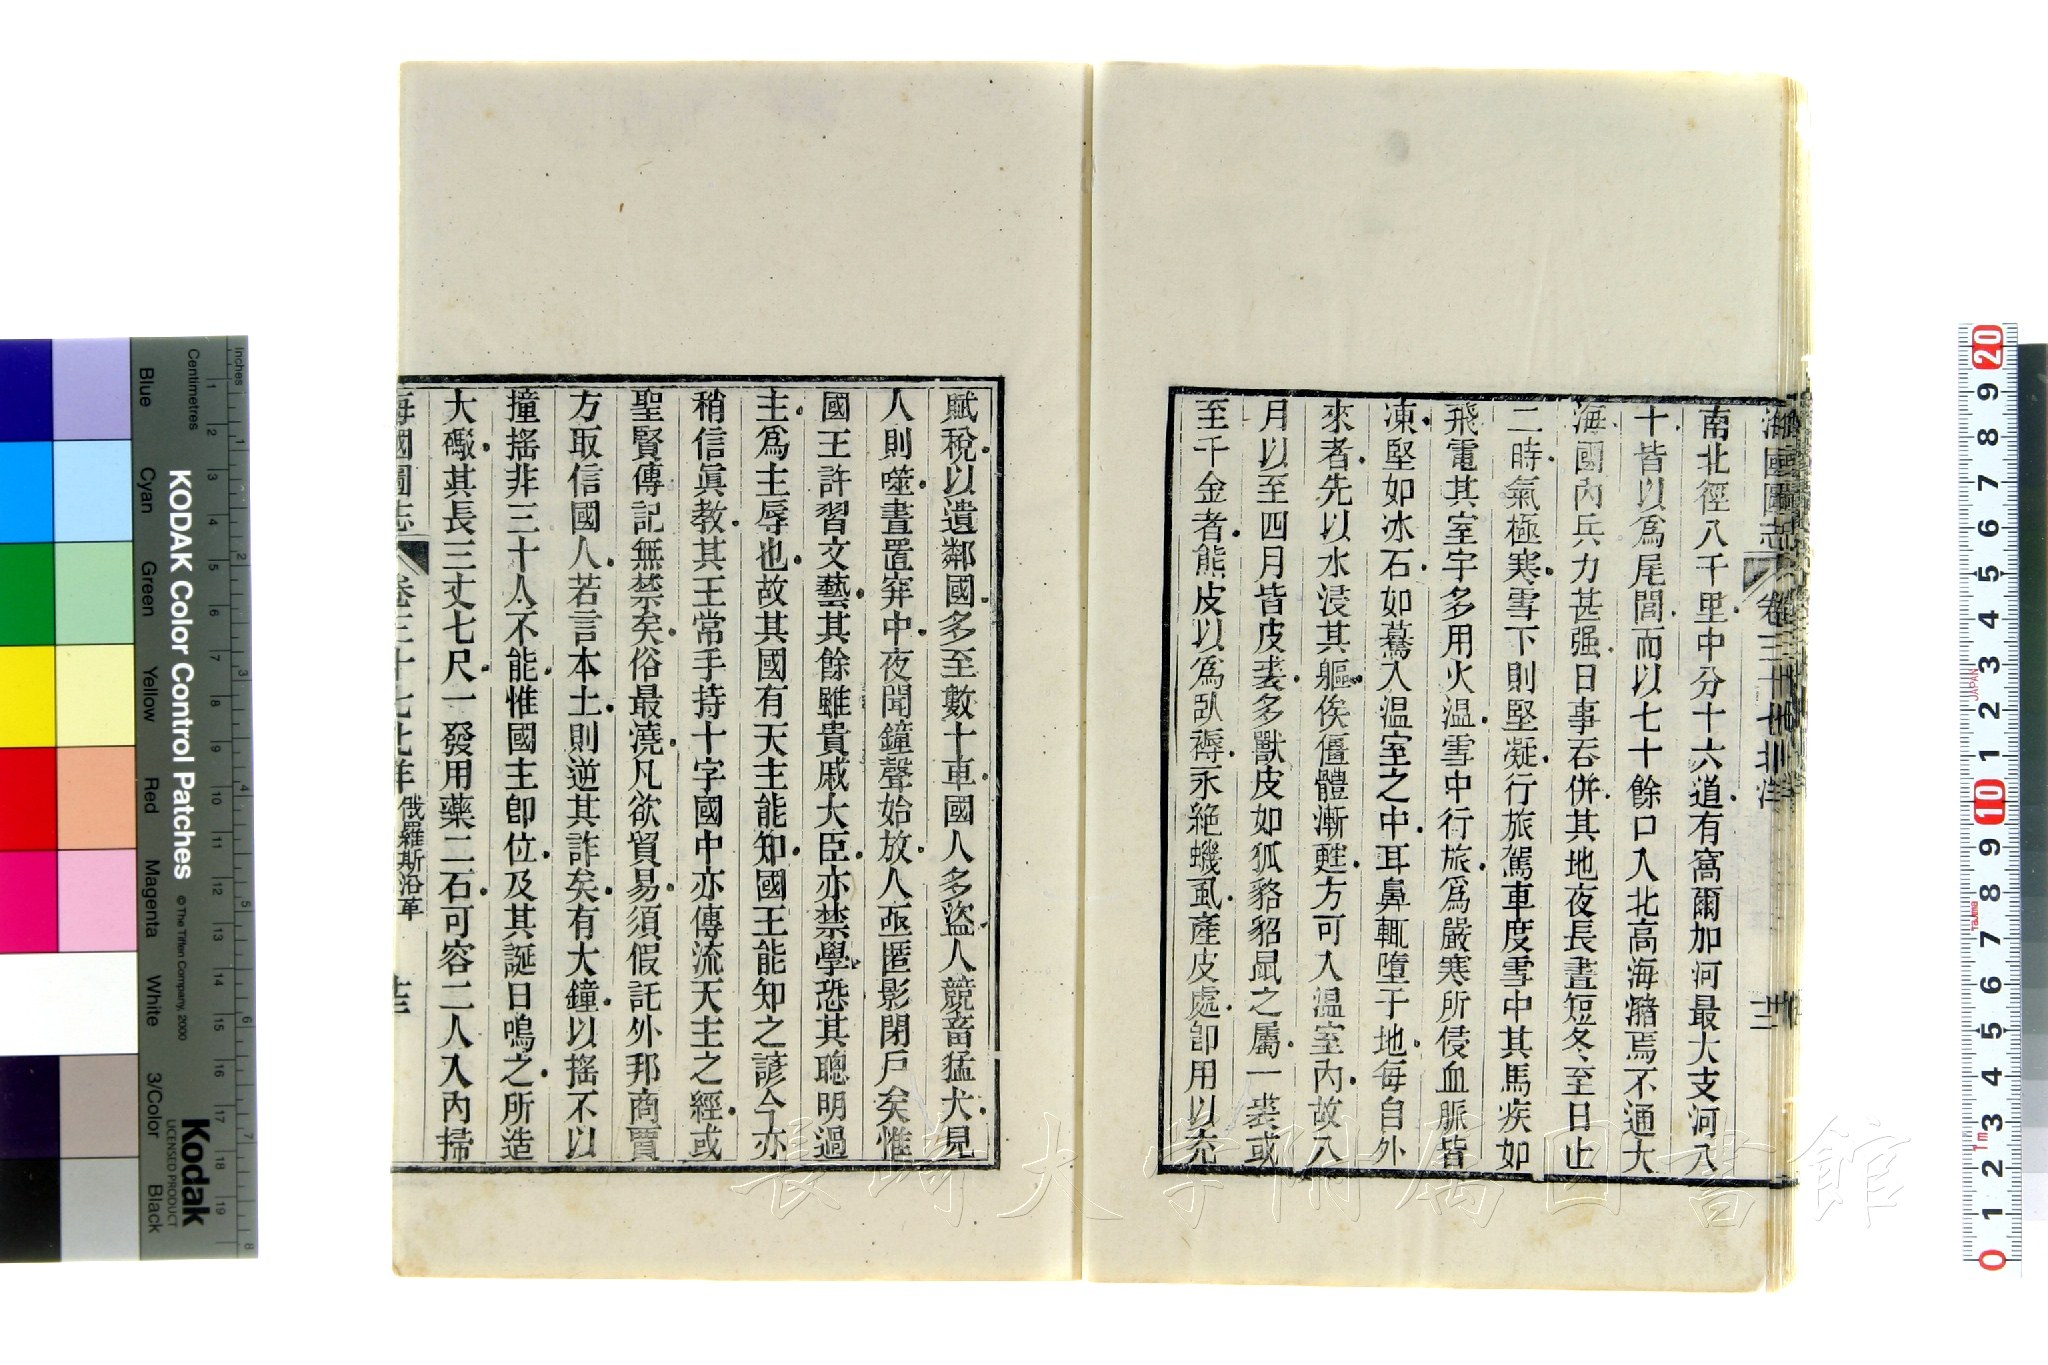 海國圖志 卷三十七 北洋
南北徑八千里中分十六道有窩爾加河最大支河八
十皆以爲尾閭而以七十餘口入北高海豬焉不通大
海國內兵力甚强日事吞併其地夜長晝短冬至日止
二時氣極寒雪下則堅凝行旅駕車度雪中其馬疾如
飛電其室宇多用火温雪中行旅爲嚴寒所侵血脈皆
凍堅如冰石如驀入温室之中耳鼻輒墮于地每自外
來者先以水浸其軀俟僵體漸甦方可入温室內故八
月以至四月皆皮裘多獸皮如狐貉貂鼠之屬一裘或
至千金者熊皮以爲臥褥永絕蟣虱產皮處卽用以充
賦稅以遺鄰國多至數十車國人多盜人競畜猛犬見
人則噬晝置穽中夜聞鐘聲始放人亟匿影閉戶矣惟
國王許習文藝其餘雖貴戚大臣亦禁學恐其聰明過
主爲主辱也故其國有天主能知國王能知之諺今亦
稍信眞教其王常手持十字國中亦傳流天主之經或
聖賢傳記無禁矣俗最澆凡欲貿易須假託外邦商賈
方取信國人若言本土則逆其詐矣有大鐘以搖不以
撞搖非三十人不能惟國主卽位及其誕日鳴之所造
大礮其長三丈七尺一發用藥二石可容二人入內掃
海國圖志 卷三十七 北洋 俄羅斯沿革
長崎大学附属図書館
Inches
Centimetres
KODAK Color Control Patches
© The Tiffen Company, 2000
Kodak
LICENSED PRODUCT
Blue
Cyan
Green
Yellow
Red
Magenta
White
3/Color
Black
1 2 3 4 5 6 7 8
1 2 3 4 5 6 7 8 9 10 11 12 13 14 15 16 17 18 19
20 9 8 7 6 5 4 3 2 1 10 9 8 7 6 5 4 3 2 1 0
JAPAN